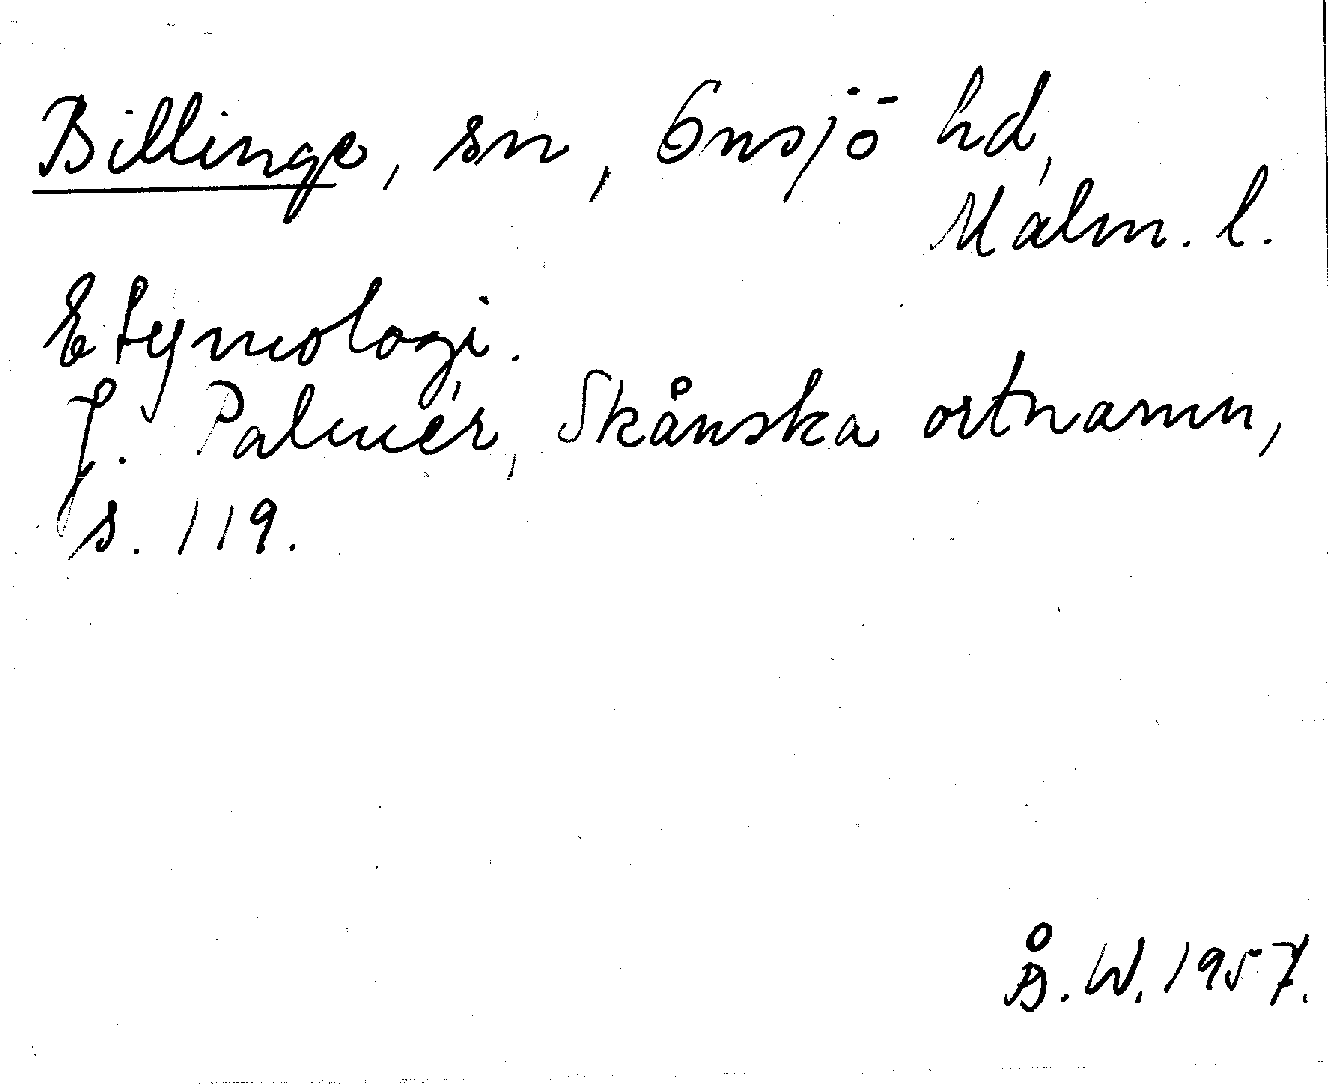 Billinge, sn, Onsjö hd,
Malm. l.
Etymologi.
J. Palmér, Skånska ortnamn,
s. 119.
Å. W. 1957.